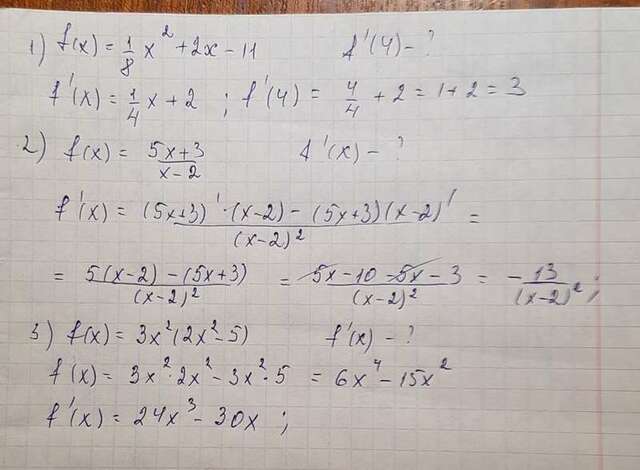 1) f(x) = 1/8 x² + 2x - 11 f'(4) - ?
f'(x) = 1/4 x + 2 ; f'(4) = 4/4 + 2 = 1 + 2 = 3
2) f(x) = (5x+3)/(x-2) f'(x) - ?
f'(x) = ((5x+3)'·(x-2) - (5x+3)(x-2)')/(x-2)² =
= (5(x-2) - (5x+3))/(x-2)² = (5x-10-5x-3)/(x-2)² = -13/(x-2)² ;
3) f(x) = 3x²(2x²-5) f'(x) - ?
f(x) = 3x²·2x² - 3x²·5 = 6x⁴ - 15x²
f'(x) = 24x³ - 30x ;